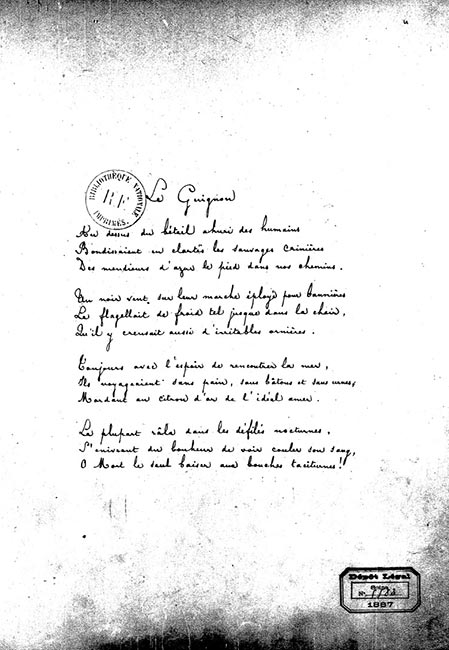 BIBLIOTHÈQUE NATIONALE
R.F.
IMPRIMÉS.
Le Guignon
Au dessus du bétail ahuri des humains
Bondissaient en clartés les sauvages crinières
Des mendieurs d'azur le pied dans nos chemins.
Un noir vent sur leur marche éployé pour bannières
La flagellait de froid tel jusque dans la chair,
Qu'il y creusait aussi d'irritables ornières.
Toujours avec l'espoir de rencontrer la mer,
Ils voyageaient sans pain, sans bâtons et sans urnes,
Mordant au citron d'or de l'idéal amer.
La plupart râla dans les défilés nocturnes,
S'enivrant du bonheur de voir couler son sang,
O Mort le seul baiser aux bouches taciturnes!
Dépôt Légal
No.
1887